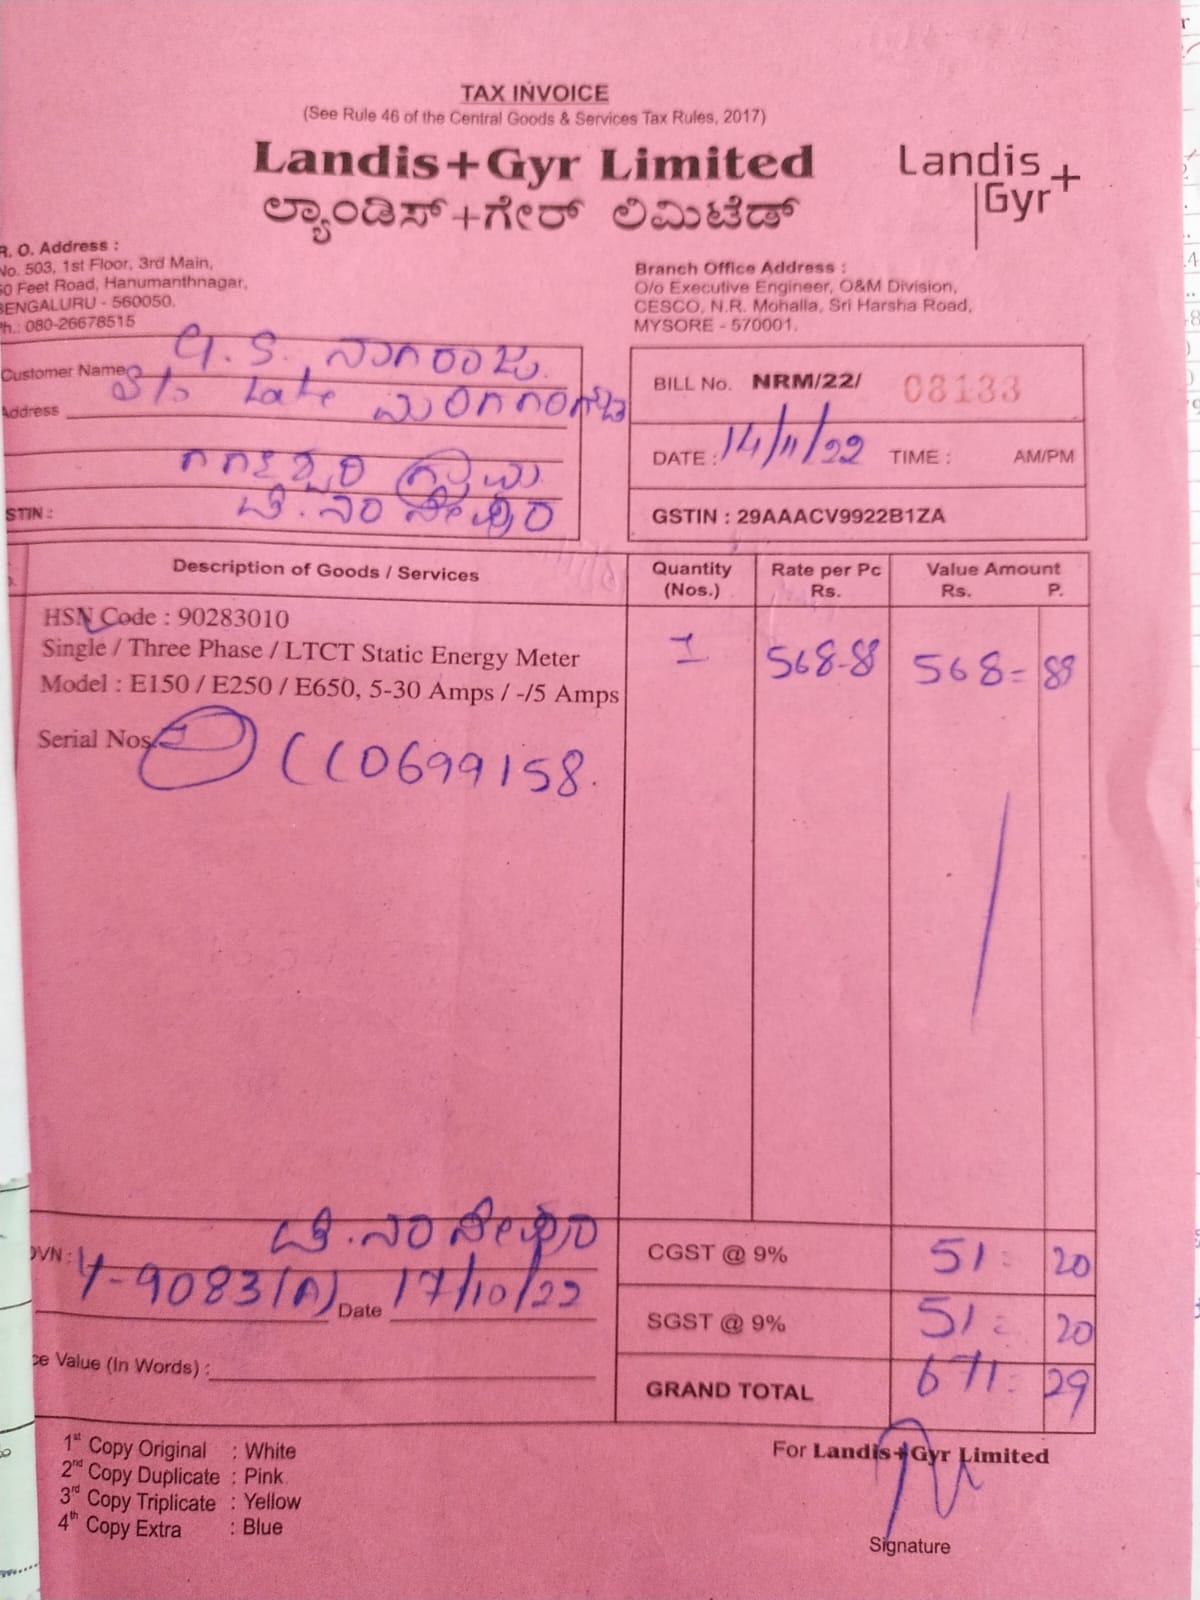 TAX INVOICE
(See Rule 46 of the Central Goods & Services Tax Rules, 2017)
Landis+Gyr Limited
ಲ್ಯಾಂಡಿಸ್+ಗೇರ್ ಲಿಮಿಟೆಡ್
Landis
Gyr+
R. O. Address :
No. 503, 1st Floor, 3rd Main,
50 Feet Road, Hanumanthnagar,
BENGALURU - 560050.
Ph.: 080-26678515
Branch Office Address :
O/o Executive Engineer, O&M Division,
CESCO, N.R. Mohalla, Sri Harsha Road,
MYSORE - 570001.
Customer Name ನಾಗರಾಜು.
Address S/o Late
STIN :
BILL No. NRM/22/ 08133
DATE : 14/11/22 TIME : AM/PM
GSTIN : 29AAACV9922B1ZA
Description of Goods / Services Quantity (Nos.) Rate per Pc Rs. Value Amount Rs. P.
HSN Code : 90283010
Single / Three Phase / LTCT Static Energy Meter 1 568-88 568=88
Model : E150 / E250 / E650, 5-30 Amps / -/5 Amps
Serial Nos. CC0699158.
OVN : 4-9083(A) Date 17/10/22
CGST @ 9% 51= 20
SGST @ 9% 51= 20
GRAND TOTAL 671= 29
ce Value (In Words) :
1st Copy Original : White
2nd Copy Duplicate : Pink
3rd Copy Triplicate : Yellow
4th Copy Extra : Blue
For Landis+Gyr Limited
Signature